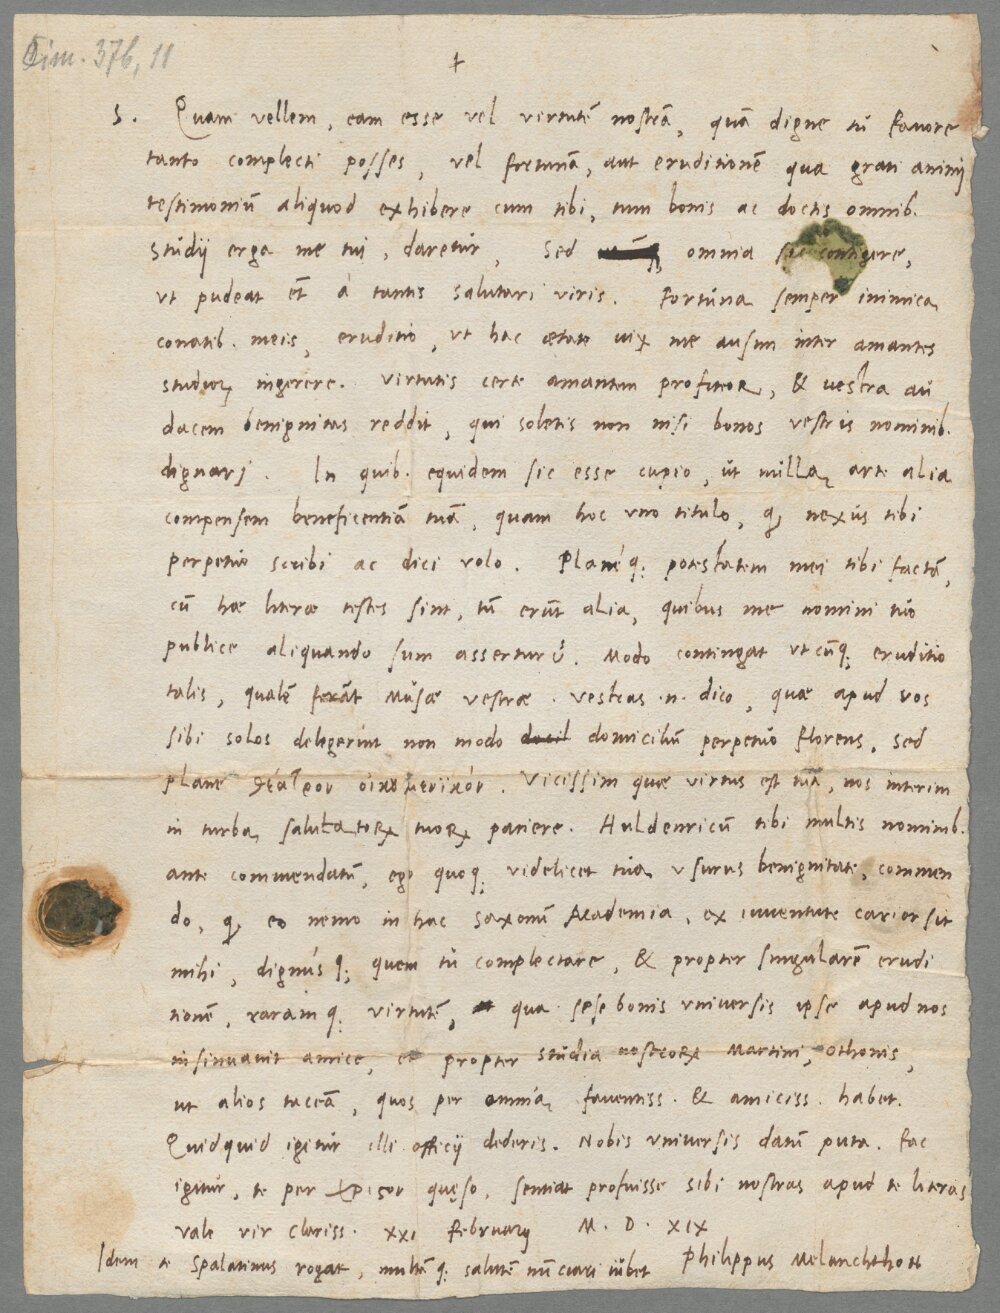 Cim. 37b, 11
+
S. Quam vellem, eam esse vel virtutẽ nostrã, quã digne tũ favore
tanto complecti posses, vel fortunã, aut eruditionẽ qua grati animi
testimoniũ aliquod exhibere cum tibi, tum bonis ac doctis omnib.
studij erga me tui, daretur, Sed omnia sic contigere,
vt pudeat et a tantis salutari viris. Fortuna semper inimica
conatib. meis, eruditio, vt hac ætate vix me ausim inter amantes
studior, ingerere. virtutis certe amantem profiteor, & uestra au
dacem benignitas reddit, qui soletis non nisi bonos vestris nominib.
dignarj. In quib. equidem sic esse cupio, ut nulla arte alia
compensem beneficentiã tuã, quam hoc vno titulo, q nexus tibi
perpetuo scribi ac dici volo. Planeq; potestatem mei tibi factã,
cũ hæ literæ testes sint, tũ erũt alia, quibus me nomini tuo
publice aliquando sum asserturũ. Modo contingat vtcũq; eruditio
talis, qualẽ ferãt Musæ vestræ. vestras .n. dico, quæ apud vos
sibi solos delegerint non modo domicilũ perpetuo florens, sed
plane θέατρον οἰκουμενικόν. Vicissim quæ virtus est tua, nos interim
in turba salutator tuor patiere. Huldenricũ tibi multis nominib.
ante commendatũ, ego quoq; videlicet tua vsurus benignitate, commen
do, q eo nemo in hac Saxonũ Academia, ex iuventute carior sit
mihi, dignus q; quem tũ complectare, & propter singularẽ erudi
tionẽ, raram q; virtutẽ, qua sese bonis vniversis ipse apud nos
insinuavit amice, et propter studia nostror Martini, Othonis,
ut alios taceã, quos per omnia faventiss. & amiciss. habet.
Quidquid igitur illi officij dederis. Nobis vniversis datũ puta. Fac
igitur, te per χριϛον quęso, sentiat profuisse sibi nostras apud te literas
vale vir clariss. XXI February M. D. XIX
Idem te Spalatinus rogat, multã q; salutẽ nũciari iubet Philippus Melanchthon